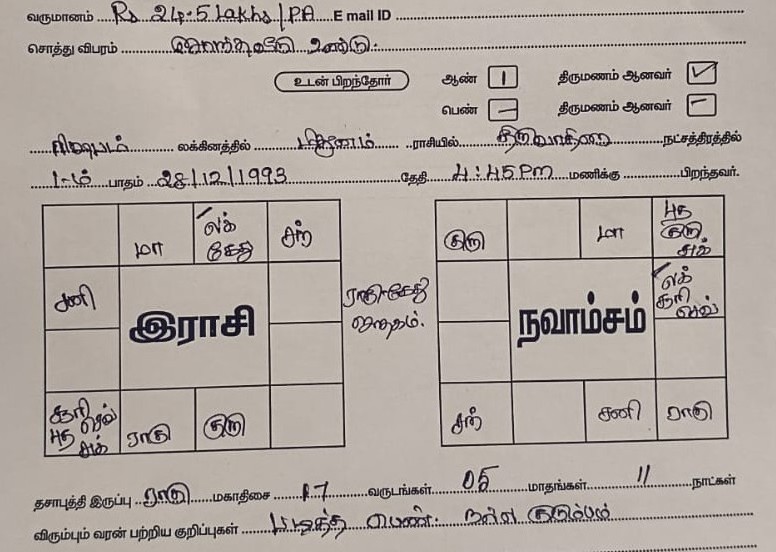 வருமானம் Rs 24.5 Lakhs / PA E mail ID
சொத்து விபரம் சொந்தவீடு உண்டு.
உடன் பிறந்தோர் ஆண் 1 திருமணம் ஆனவர் ✓
பெண் – திருமணம் ஆனவர் –
ரிஷபம் லக்கினத்தில் மிதுனம் ராசியில் திருவாதிரை நட்சத்திரத்தில்
1-ம் பாதம் 28/12/1993 தேதி 4:45 PM மணிக்கு பிறந்தவர்.
மா லக் கேது சந் குரு மா புத குரு சுக்
சனி இராசி ராகு-கேது ஜாதகம். நவாம்சம் லக் சூரி செவ்
சூரி செவ் புத சுக் ராகு குரு சந் சனி ராகு
தசாபுத்தி இருப்பு ராகு மகாதிசை 17 வருடங்கள் 05 மாதங்கள் 11 நாட்கள்
விரும்பும் வரன் பற்றிய குறிப்புகள் படித்த பெண். நல்ல குடும்பம்